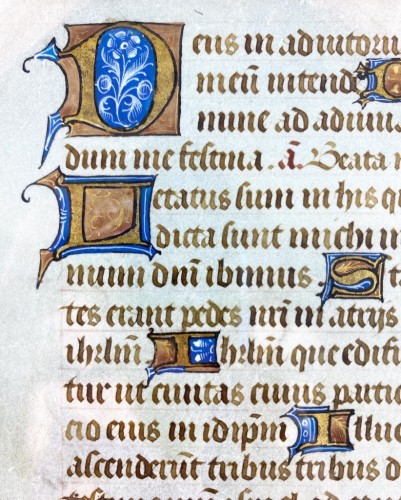 Deus in adiutoriu
meū intende D
mine ad adiuua
dum me festina . ā. Beata m
Letatus sum in his qu
dicta sunt michi in
mum dnī ibimus S ta
tes erant pedes nrī in atrijs
ihrlm̄ I hrlm̄ que edifi
tur ut ciuitas cuius partici
cio eius in idipm̄ I lluc
ascenderūt tribus tribus d